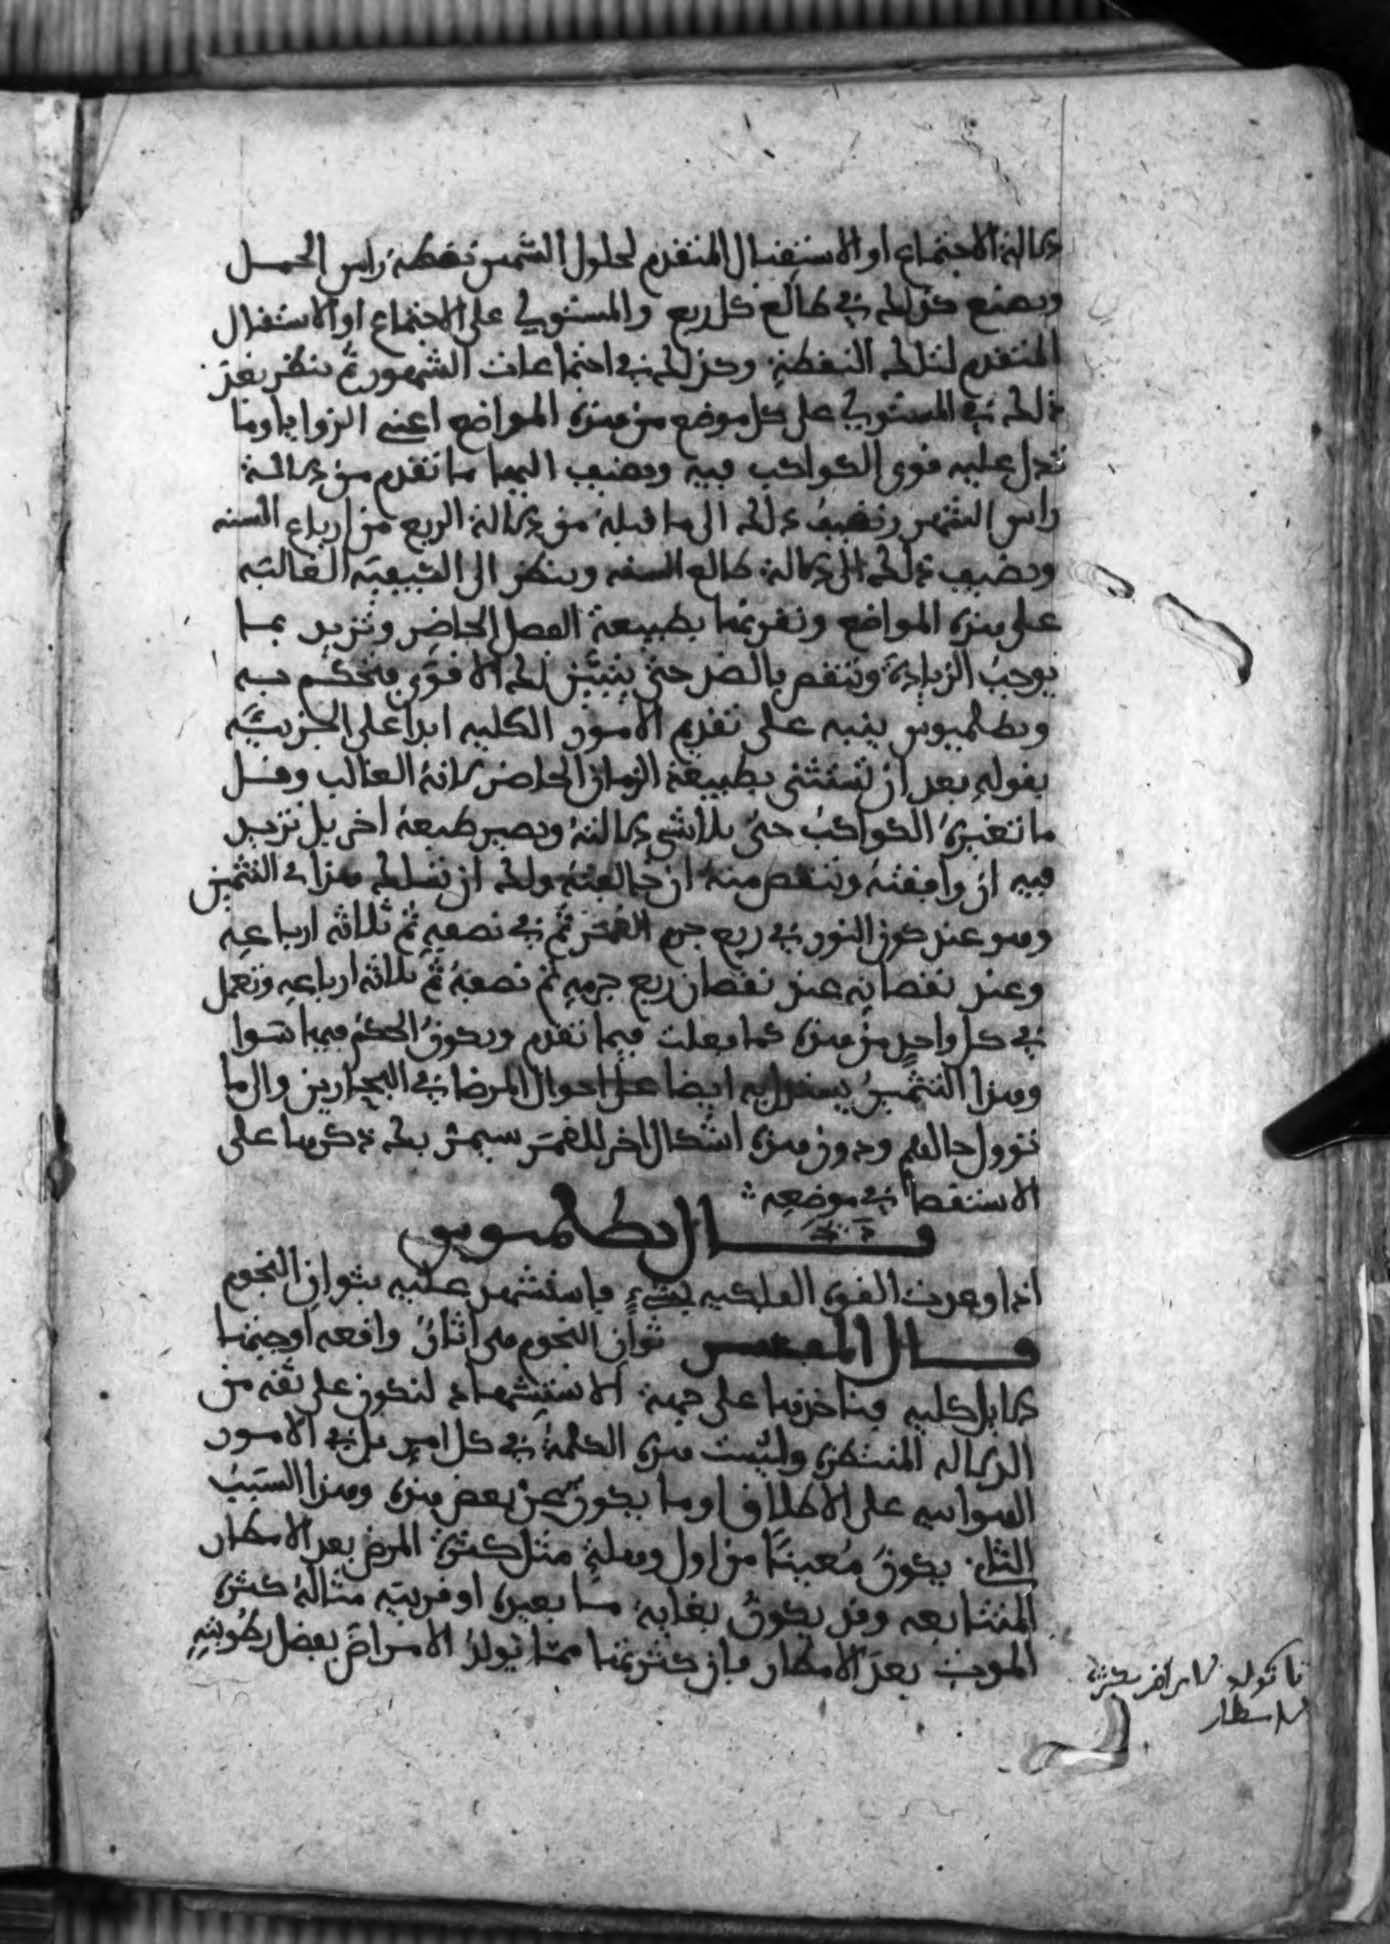 دلالة الاجتماع او الاستقبال المتقدم لحلول الشمس نقطة راس الحمل
ويصنع كذلك في طالع كل ربع والمستولي على الاجتماع او الاستقبال
المتقدم لتلك النقطة وكذلك في اجتماعات الشهور ثم ينظر بعد
ذلك في المستولي على كل موضع من هذه المواضع اعني الزوايا وما
تدل عليه قوى الكواكب فيه ويضيف اليها ما تقدم من دلالة
راس الشهر وتضيف ذلك الى ما قبله من دلالة الربع من ارباع السنه
وتضيف ذلك الى دلالة طالع السنه وينظر الى الكيفية الغالبة
على هذه المواضع وتقرنها بطبيعة الفصل الحاضر وتزيد بما
يوجب الزيادة وتنقص بالضد حتى يتبين لك الاقوى فتحكم به
وبطلميوس ينبه على تقديم الامور الكليه ابدا على الجزئيّه
بقوله بعد ان تستثني بطبيعة الزمان الحاضر لانه الغالب وقل
ما تغيره الكواكب حتى يلاشي دلالته ويصير طبعه اخر بل تزيد
فيه ان وافقته وتنقص منه ان خالفته ولك ان تسلك هذا في التثمين
وهو عند كون النور في ربع جرم القمر ثم في نصفه ثم ثلاثة ارباعه
وعند نقصانه عند نقصان ربع جرمه ثم نصفه ثم ثلاثة ارباعه وتعمل
في كل واحد من هذه كما فعلت فيما تقدم ويكون الحكم فيها سوا
وهذا التثمين يستدل به ايضا على احوال المرضا في البحارين والى ما
تؤول حالهم ودون هذه اشكال اخر للقمر سيمر بك ذكرها على
الاستقصا في موضعه
قال بطلميوس
اذا وعدت القوى الفلكيه بشيء فاستشهد عليه بثواني النجوم
قال المفسر ثواني النجوم هي اثار واقعه اوجبتها
دلايل كليه فتاخذها على جهة الاستشهاد لتكون على ثقة من
الدلاله المنتظره وليست هذه الكلمة في كل امر بل في الامور
الهوائيه على الاطلاق او ما يكون عن بعض هذه وهذا السبب
الثاني يكون معينا من اول وهلة مثل كثرة المرض بعد الامطار
المتتابعه وقد يكون بغاية ما بعيده او قريبه مثاله كثرة
الموت بعد الامطار فان كثرتها مما تولد الامراض بفضل رطوبته